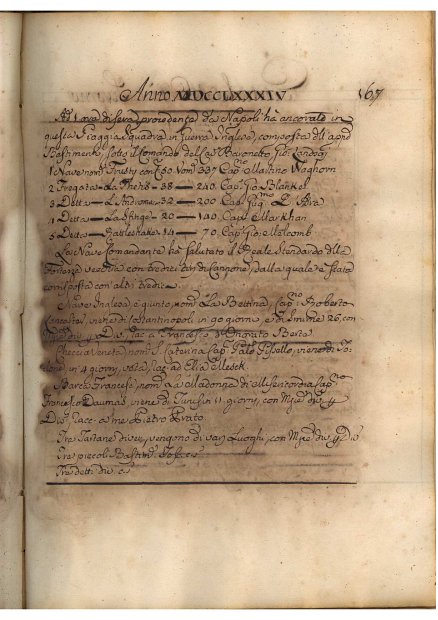 Anno MDCCLXXXIV 167
di sera, providenza da Napoli ha ancorato in
questa Piaggia Squadra in Guerra Inglese, composta
Bastimenti, sotto il Comando del Cap. Baronetto Gio. Lindsay
1 Nave nom. Trusty con C. 50 Uom. 337 Cap.no Martino Waghorn
2 Fregata La Thetis — 38 — 240. Cap. Gio. Blanket
3 Detta L'Androma. 32 — 200. Cap.
4 Detta La Sfinge — 20 — 140. Cap. Markhan
5 Detta Rattlesnake 14 — 70. Cap. Gio. Melcomb
La Nave Comandante ha salutato il Reale Stendardo della
Fortezza vecchia con tredici tiri di Cannone, dalla quale è stata
corrisposta con altri tredici.
Nave Inglese è giunta, nom. La Bettina, Cap.no Roberto
Lancaster, viene di Costantinopoli in 90 giorni, e da Smirne 26, con
Francesco, d'Onorato Berte
Checcia Veneta, nom. S. Caterina Cap. Galo viene di
in 11 giorni, racc. ad Elia Alleck.
Barca Francese, nom. La Madonza di Misericordia Cap.no
Francesco Daumas viene di Tunisi in 11 giorni, con Mzie div. p
Div. racc. a me Pietro Prato.
Tre Tartane div.e, vengono di vari Luoghi, con Mzie div. p Div.
Tre piccoli Bastim. Tosc.
Tre detti div.